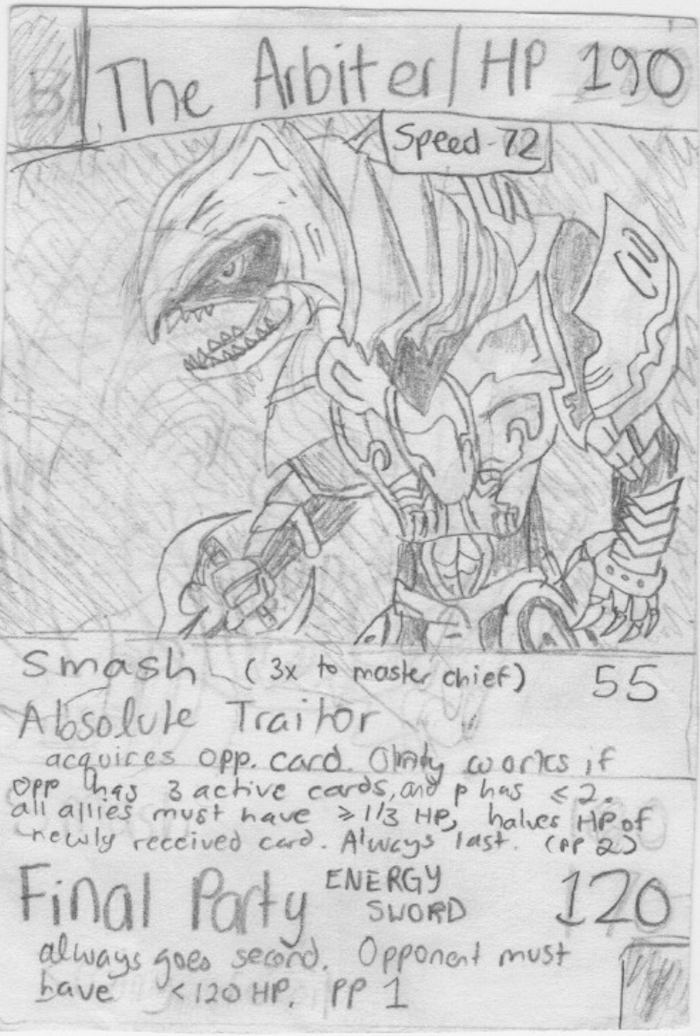 The Arbiter/ HP 190
Speed-72
Smash (3x to master chief) 55
Absolute Traitor
acquires opp. card. Only works if
opp has 3 active cards, and p has ≤ 2.
all allies must have ≥ 1/3 HP, halves HP of
newly received card. Always last. (PP 2)
Final Party ENERGY SWORD 120
always goes second. Opponent must
have <120 HP. PP 1